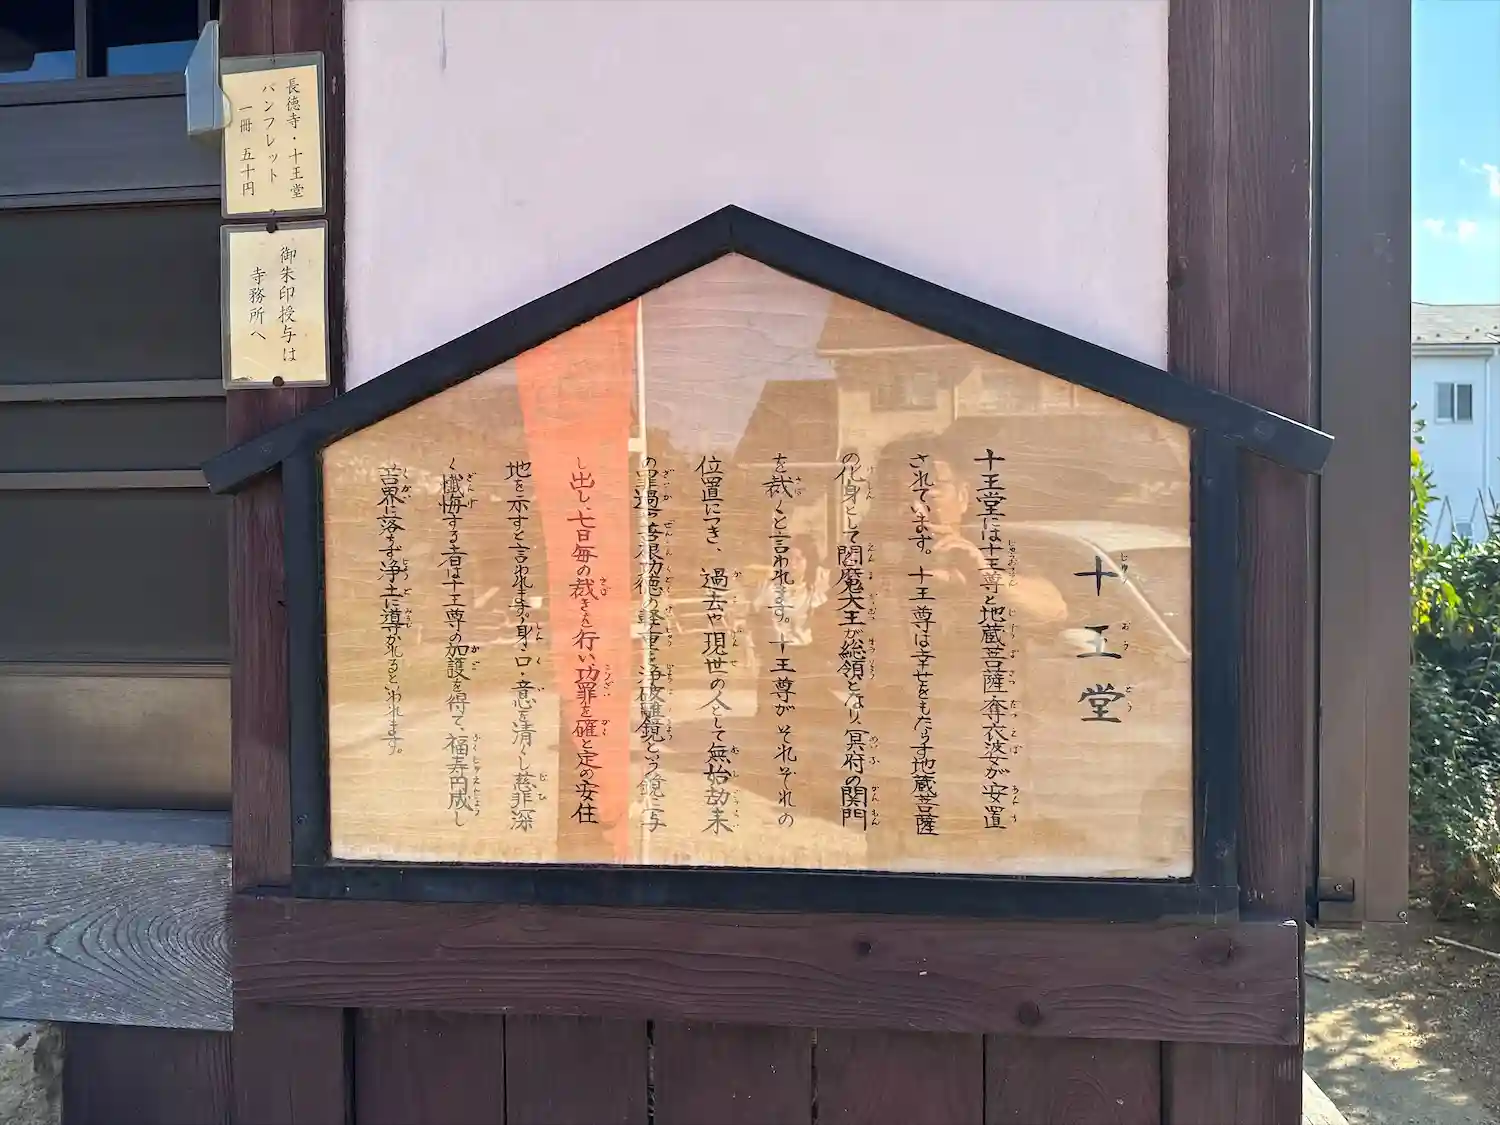 十王堂
十王堂には十王尊と地蔵菩薩・奪衣婆が安置
されています。十王尊は幸せをもたらす地蔵菩薩
の化身として閻魔大王が総領となり、冥府の関門
を裁くと言われます。十王尊がそれぞれの
位置につき、過去や現世の人として無始劫来
の罪過や善根功徳の軽重を浄玻璃鏡という鏡に写
し出し、七日毎の裁きを行い功罪を確と定め安住
地を示すと言われます。身・口・意を清くし慈悲深
く懺悔する者は十王尊の加護を得て、福寿円成し
苦界に落ちず浄土に導かれるといわれます。
長徳寺・十王堂
パンフレット
一冊 五十円
御朱印授与は
寺務所へ